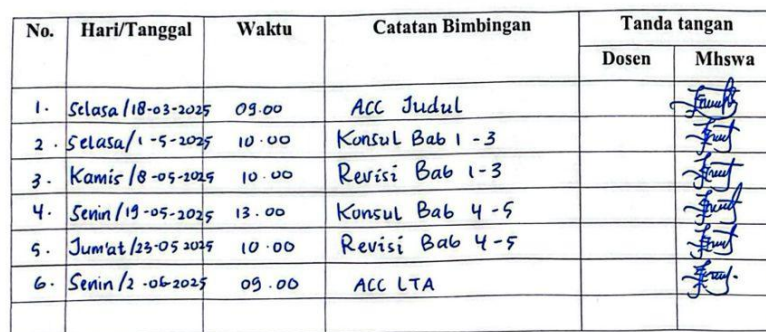 No. Hari/Tanggal Waktu Catatan Bimbingan Tanda tangan
Dosen Mhswa
1. Selasa/18-03-2025 09.00 ACC Judul
2. Selasa/1-5-2025 10.00 Konsul Bab 1-3
3. Kamis/8-05-2025 10.00 Revisi Bab 1-3
4. Senin/19-05-2025 13.00 Konsul Bab 4-5
5. Jum'at/23-05 2025 10.00 Revisi Bab 4-5
6. Senin/2-06-2025 09.00 ACC LTA